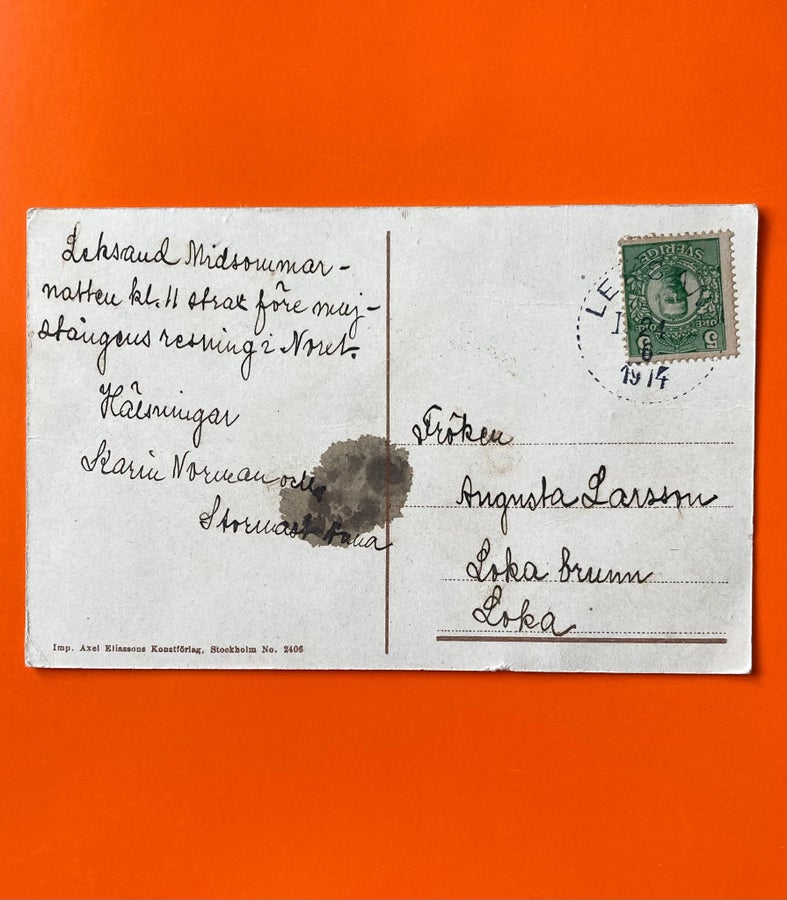 Leksand Midsommar-
natten kl. 11 strax före maj-
stångens resning i Noret.
Hälsningar
Karin Norman och
Stormast Anna
Imp. Axel Eliassons Konstförlag, Stockholm No. 2406
SVERIGE
5 ÖRE 5
LEKS
24
6
1914
Fröken
Augusta Larsson
Loka brunn
Loka